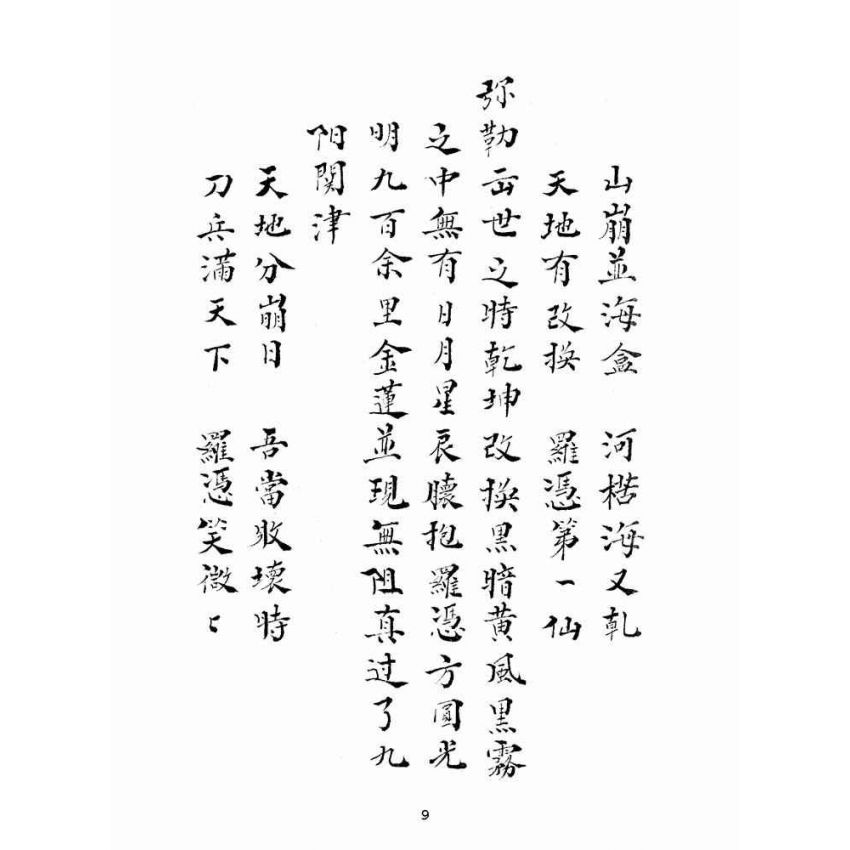 山崩並海盒 河楛海又乹
天地有改换 羅憑第一仙
弥勒出世之時乾坤改换黑暗黄風黑霧
之中無有日月星辰懷抱羅憑方圓光
明九百余里金蓮並現無阻真过了九
阳関津
天地分崩日 吾當败壊時
刀兵滿天下 羅憑笑微〻
9